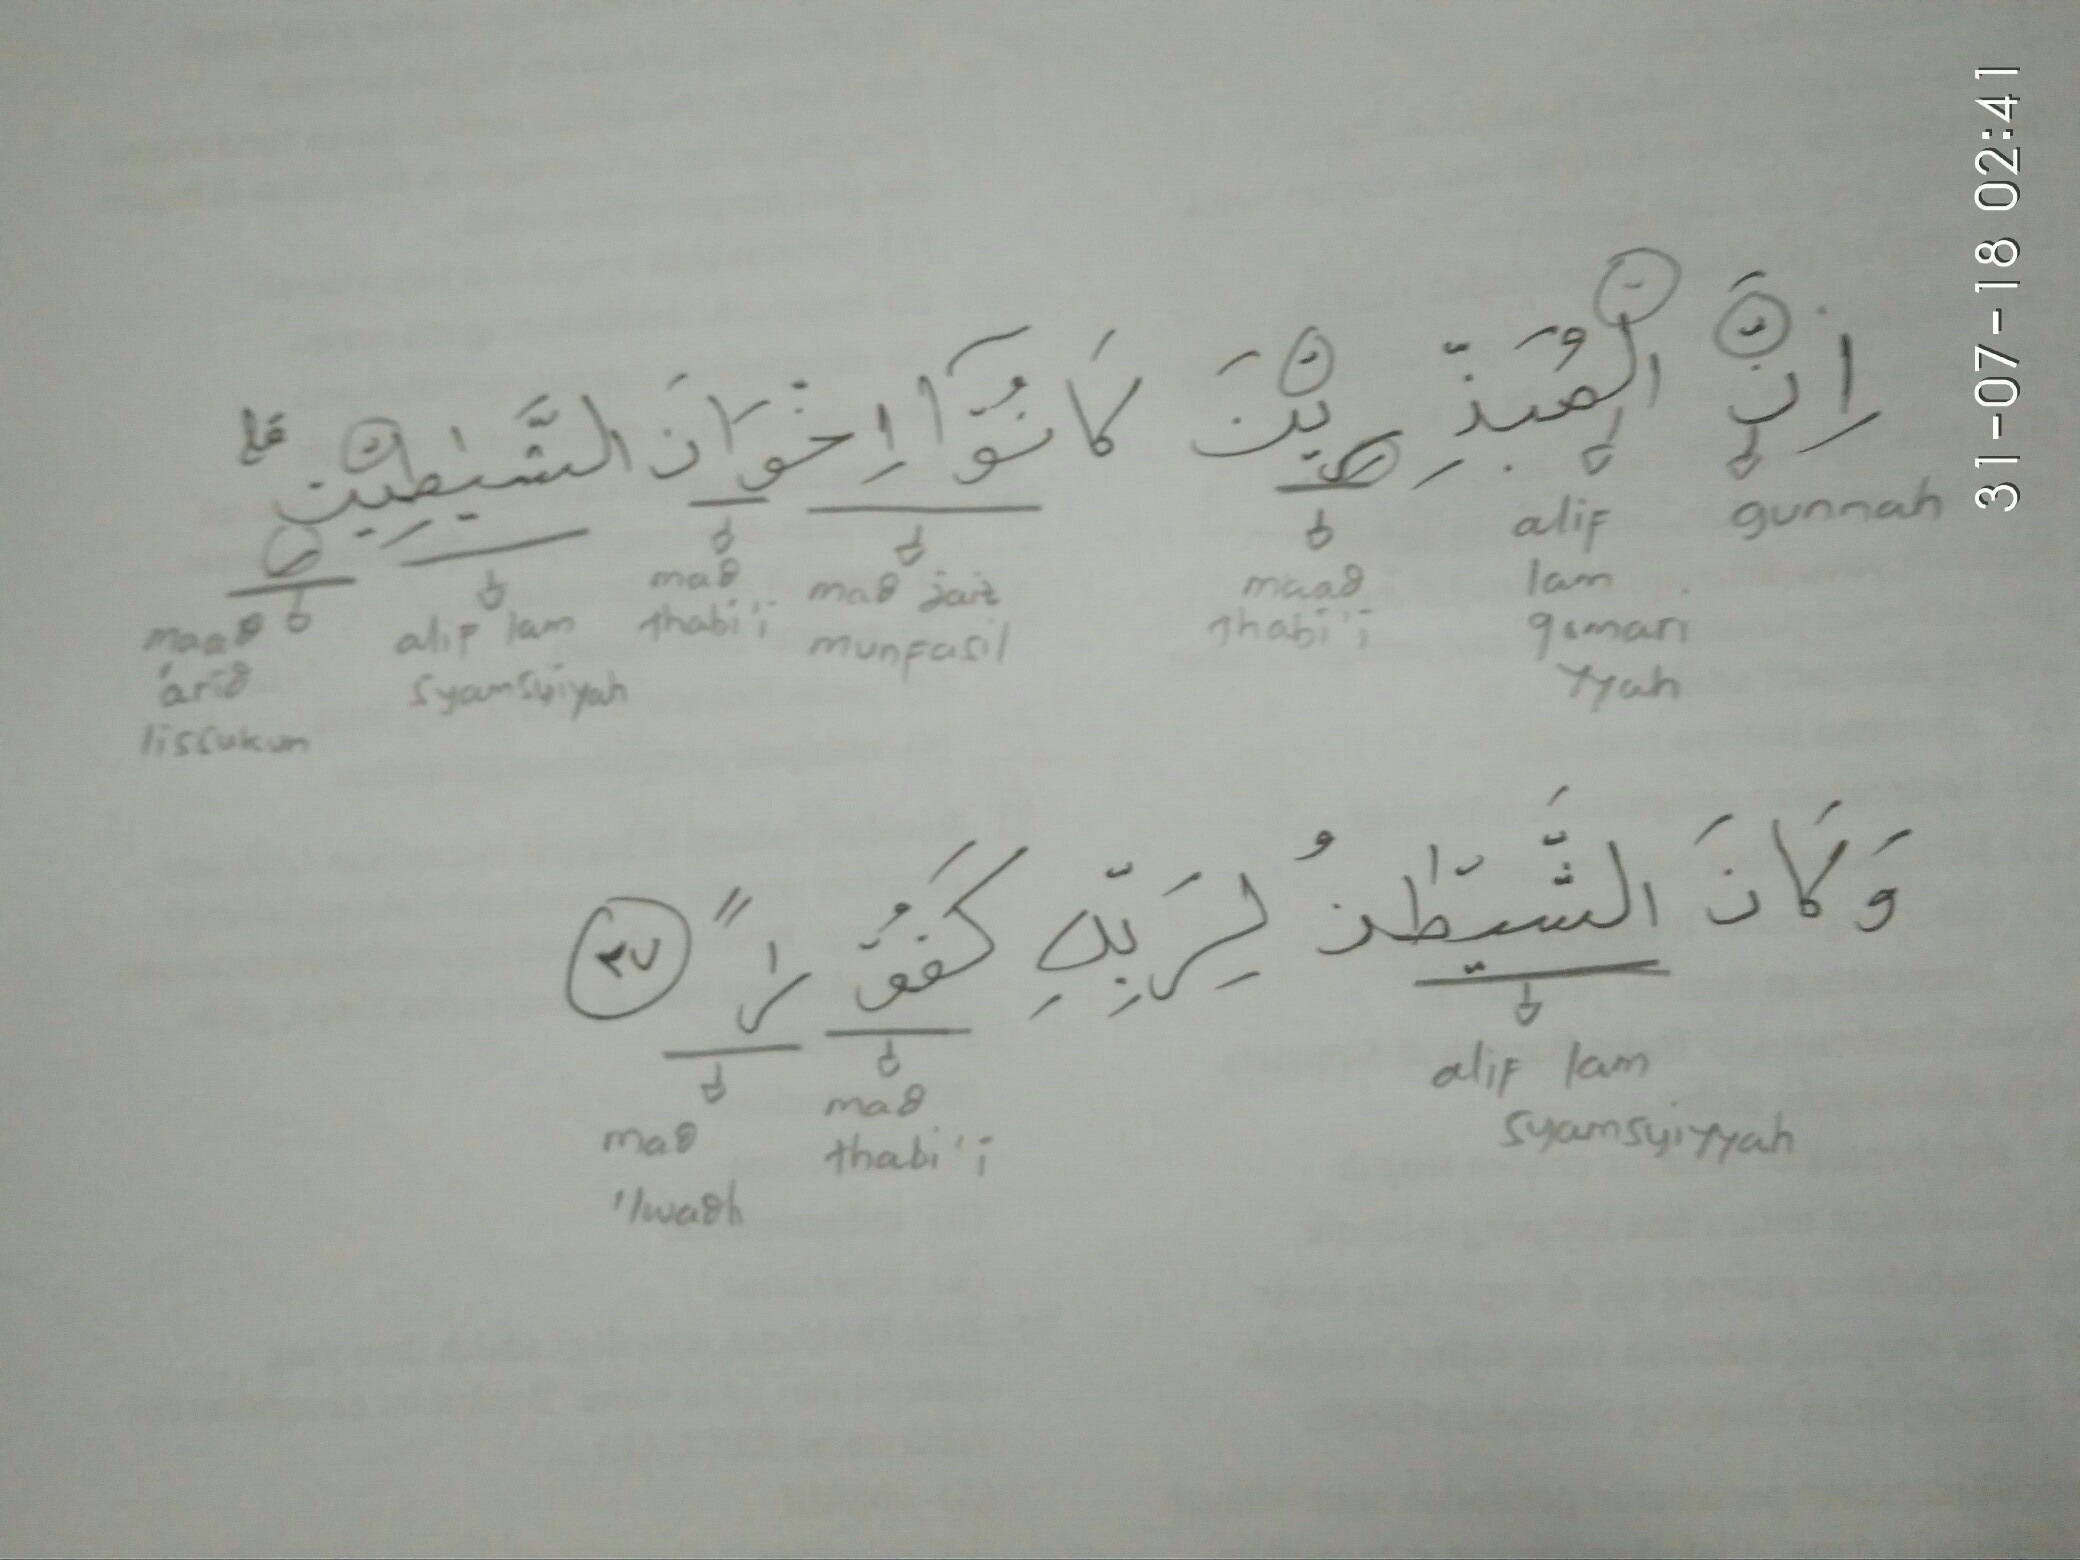 31-07-18 02:41
اِنَّ الْمُبَذِّرِيْنَ كَانُوْٓا اِخْوَانَ الشَّيٰطِيْنِ ۗ
gunnah
alif lam qamari yyah
maad thabi'i
mad jaiz munfasil
mad thabi'i
alif lam syamsyiyah
maad 'arid lissukun
وَكَانَ الشَّيْطٰنُ لِرَبِّهٖ كَفُوْرًا ٢٧
alif lam syamsyiyyah
mad thabi'i
mad 'Iwadh